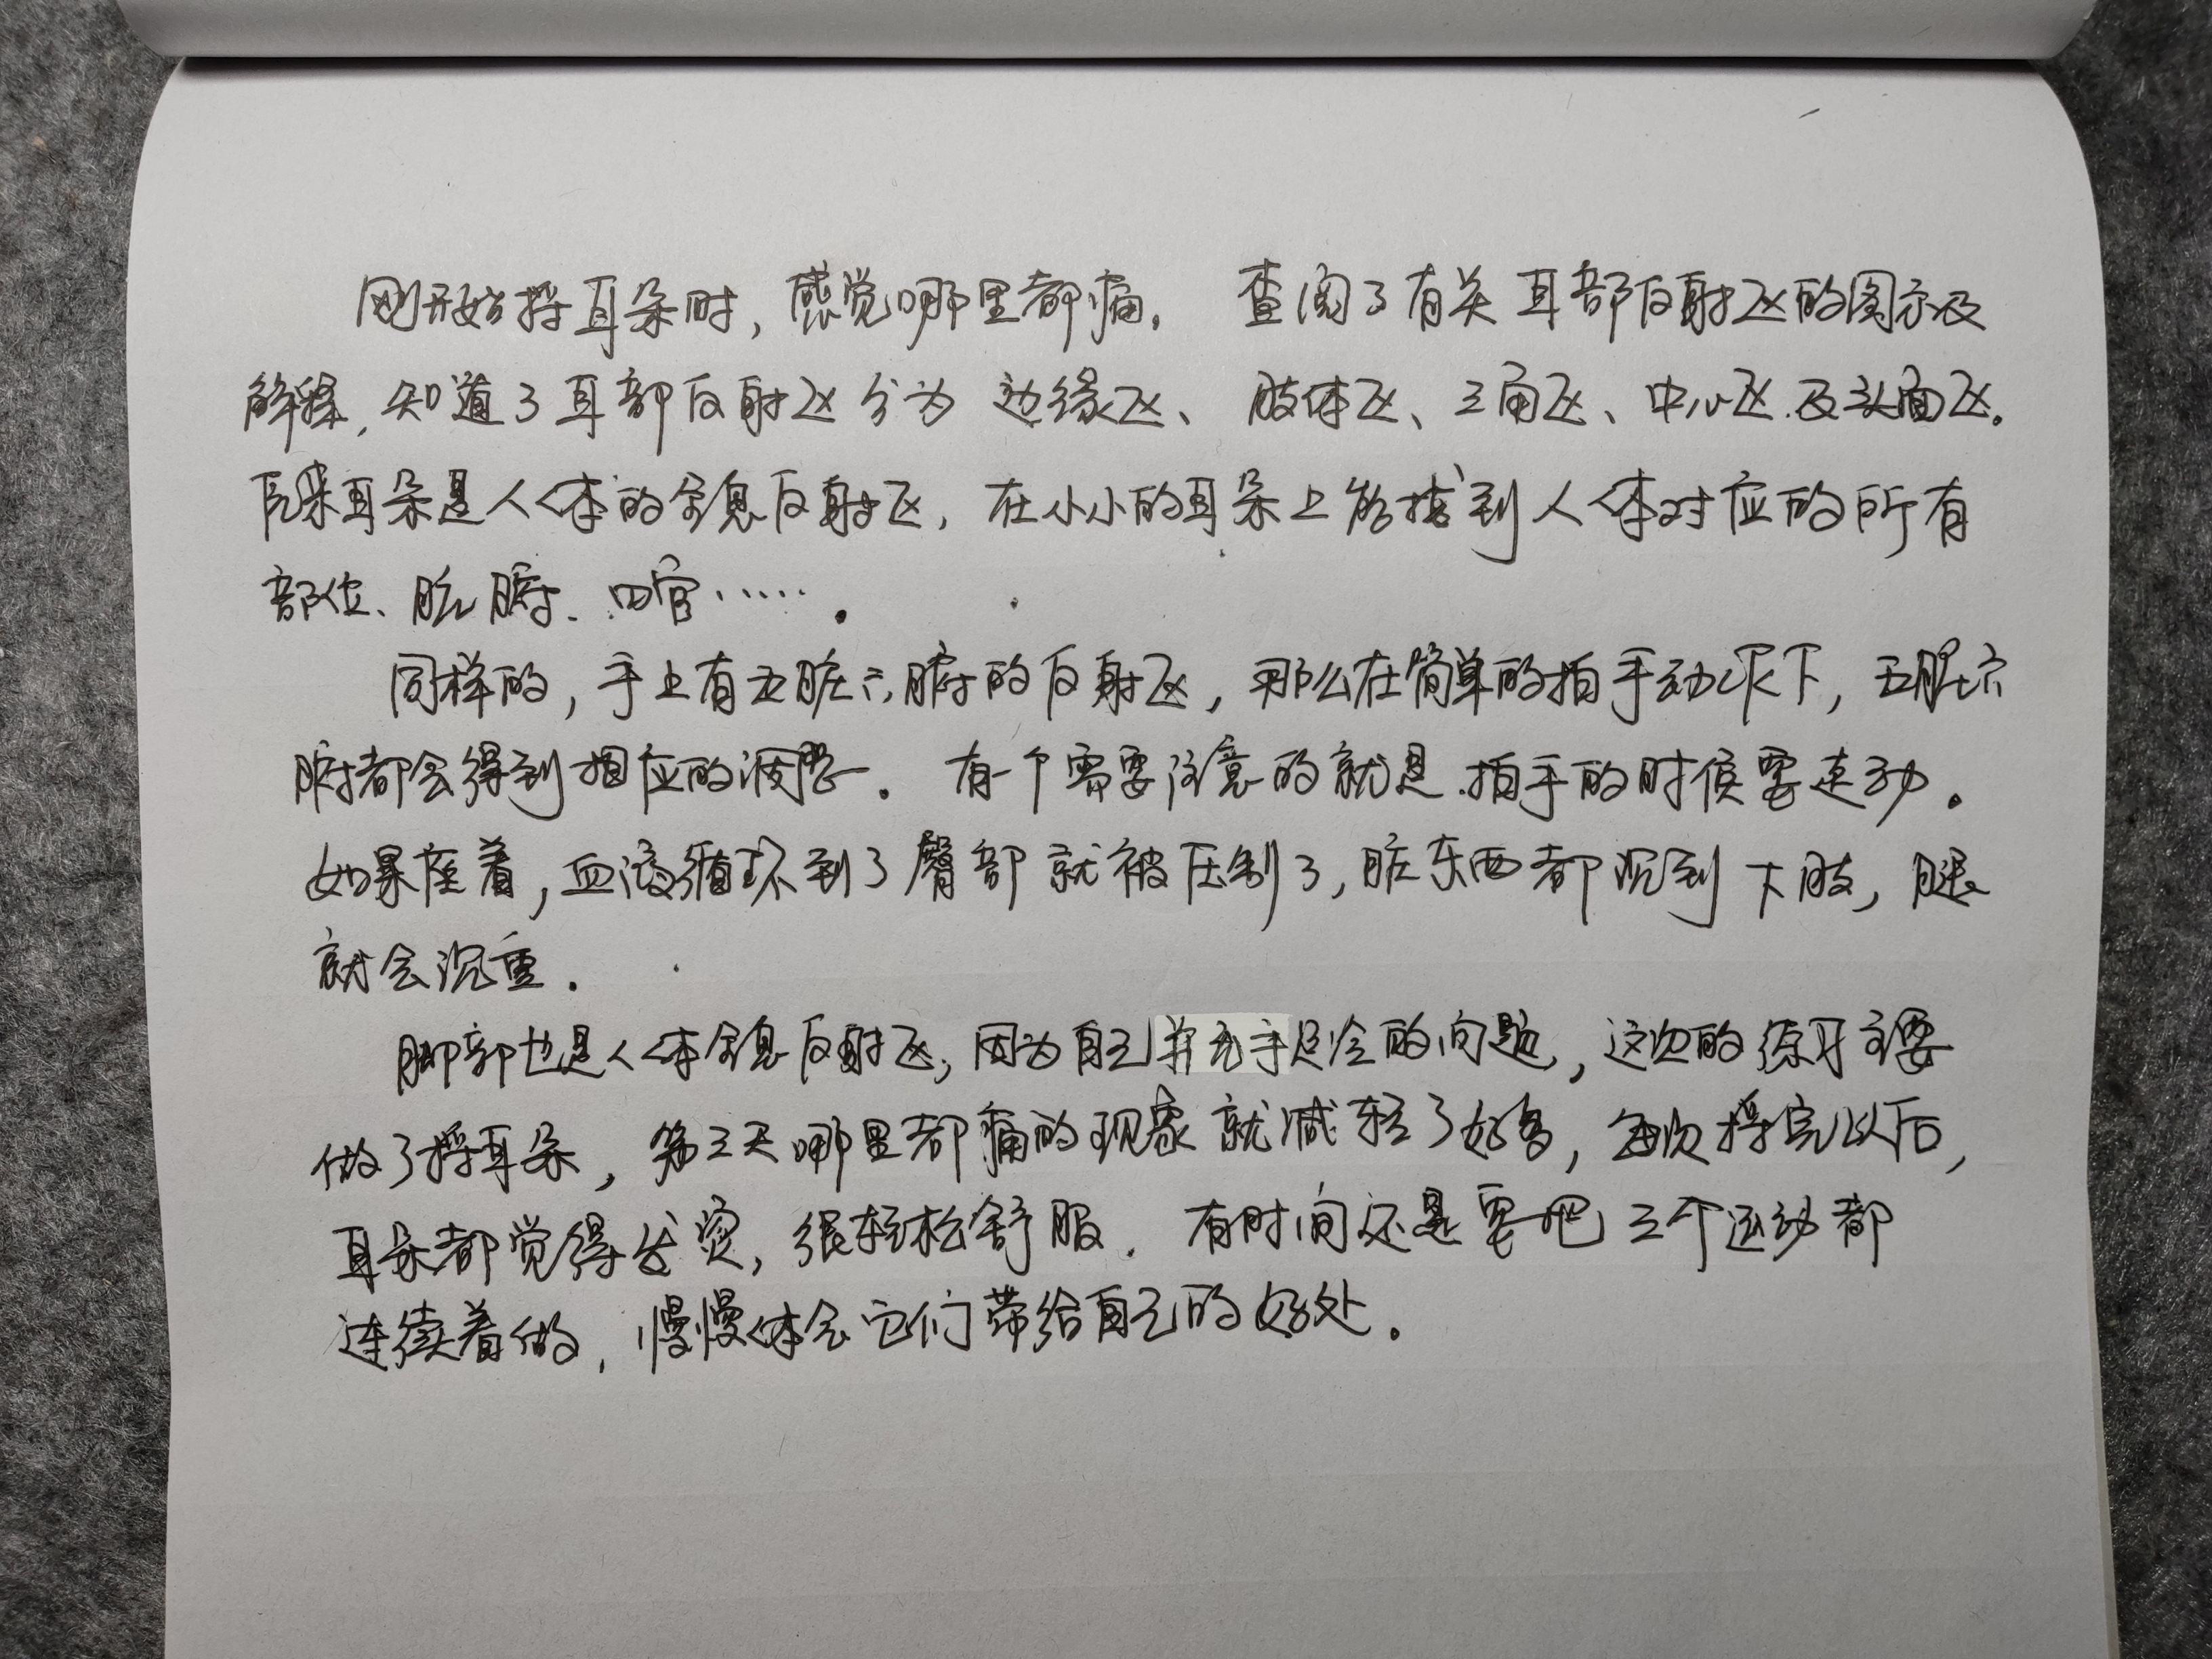 刚开始捋耳朵时，感觉哪里都痛。查阅了有关耳部反射区的图示及
解释，知道了耳部反射区分为边缘区、肢体区、三角区、中心区及头面区。
原来耳朵是人体的全息反射区，在小小的耳朵上能找到人体对应的所有
部位、脏腑、四官……。
同样的，手上有五脏六腑的反射区，那么在简单的拍手动作下，五脏六
腑都会得到相应的调整。有一个需要注意的就是拍手的时候要走动。
如果座着，血液循环到了臀部就被压制了，脏东西都沉到下肢，腿
就会沉重。
脚部也是人体全息反射区，因为自己并无手足冷的问题，这边的练习主要
做了捋耳朵，第三天哪里都痛的现象就减轻了好多，每次捋完以后，
耳朵都觉得发烫，很轻松舒服。有时间还是要把三个运动都
连续着做，慢慢体会它们带给自己的好处。